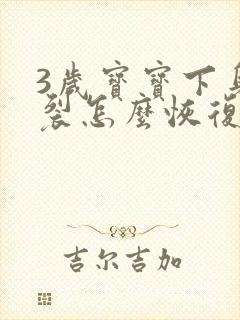 3歲寶寶下
裂怎麼恢復
吉尔吉加